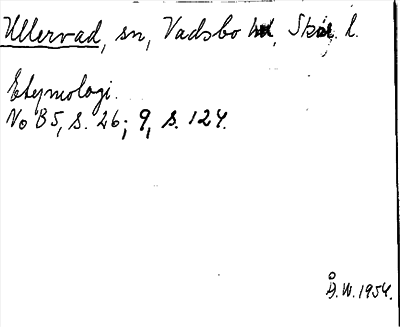 Ullervad, sn, Vadsbo hd, Skar. l.
Etymologi.
No B5, s. 26; 9, s. 124.
Å.W. 1954.